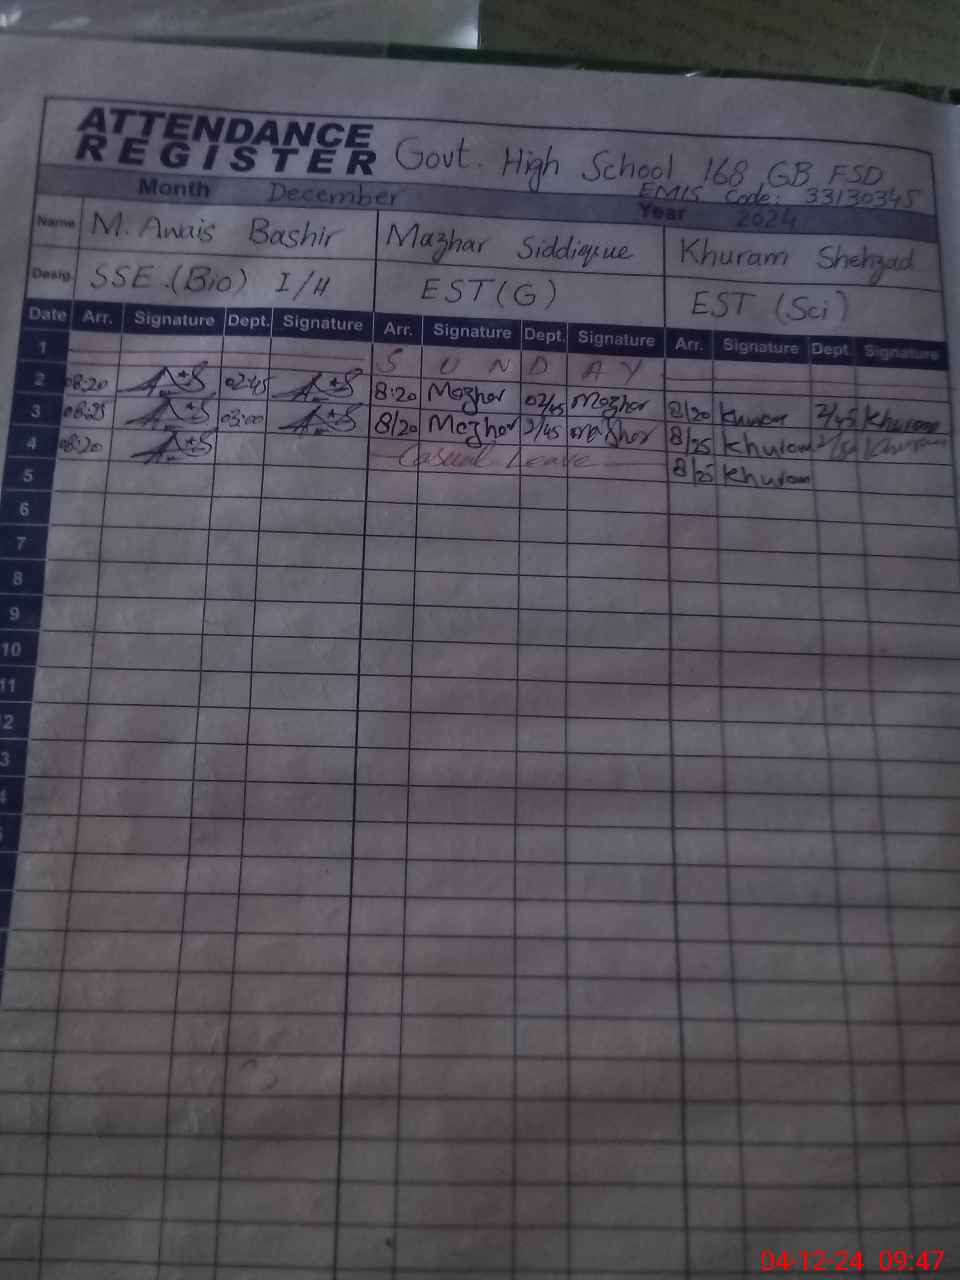 ATTENDANCE
REGISTER Govt. High School 168 GB FSD
EMIS Code: 33130345
Month December Year 2024
Name M. Awais Bashir Mazhar Siddieque Khuram Shehzad
Desig. SSE.(Bio) I/H EST(G) EST (Sci)
Date Arr. Signature Dept. Signature Arr. Signature Dept. Signature Arr. Signature Dept. Signature
1 S U N D A Y
2 08:20 02:45 8:20 Mazhar 02/45 Mazhar 8/20 Khuram 2/45 Khuram
3 08:25 03:00 8/20 Mazhar 2/45 Mazhar 8/25 Khuram Khuram
4 08:20 Casual Leave 8/25 Khuram
5
6
7
8
9
10
11
2
3
4
04-12-24 09:47